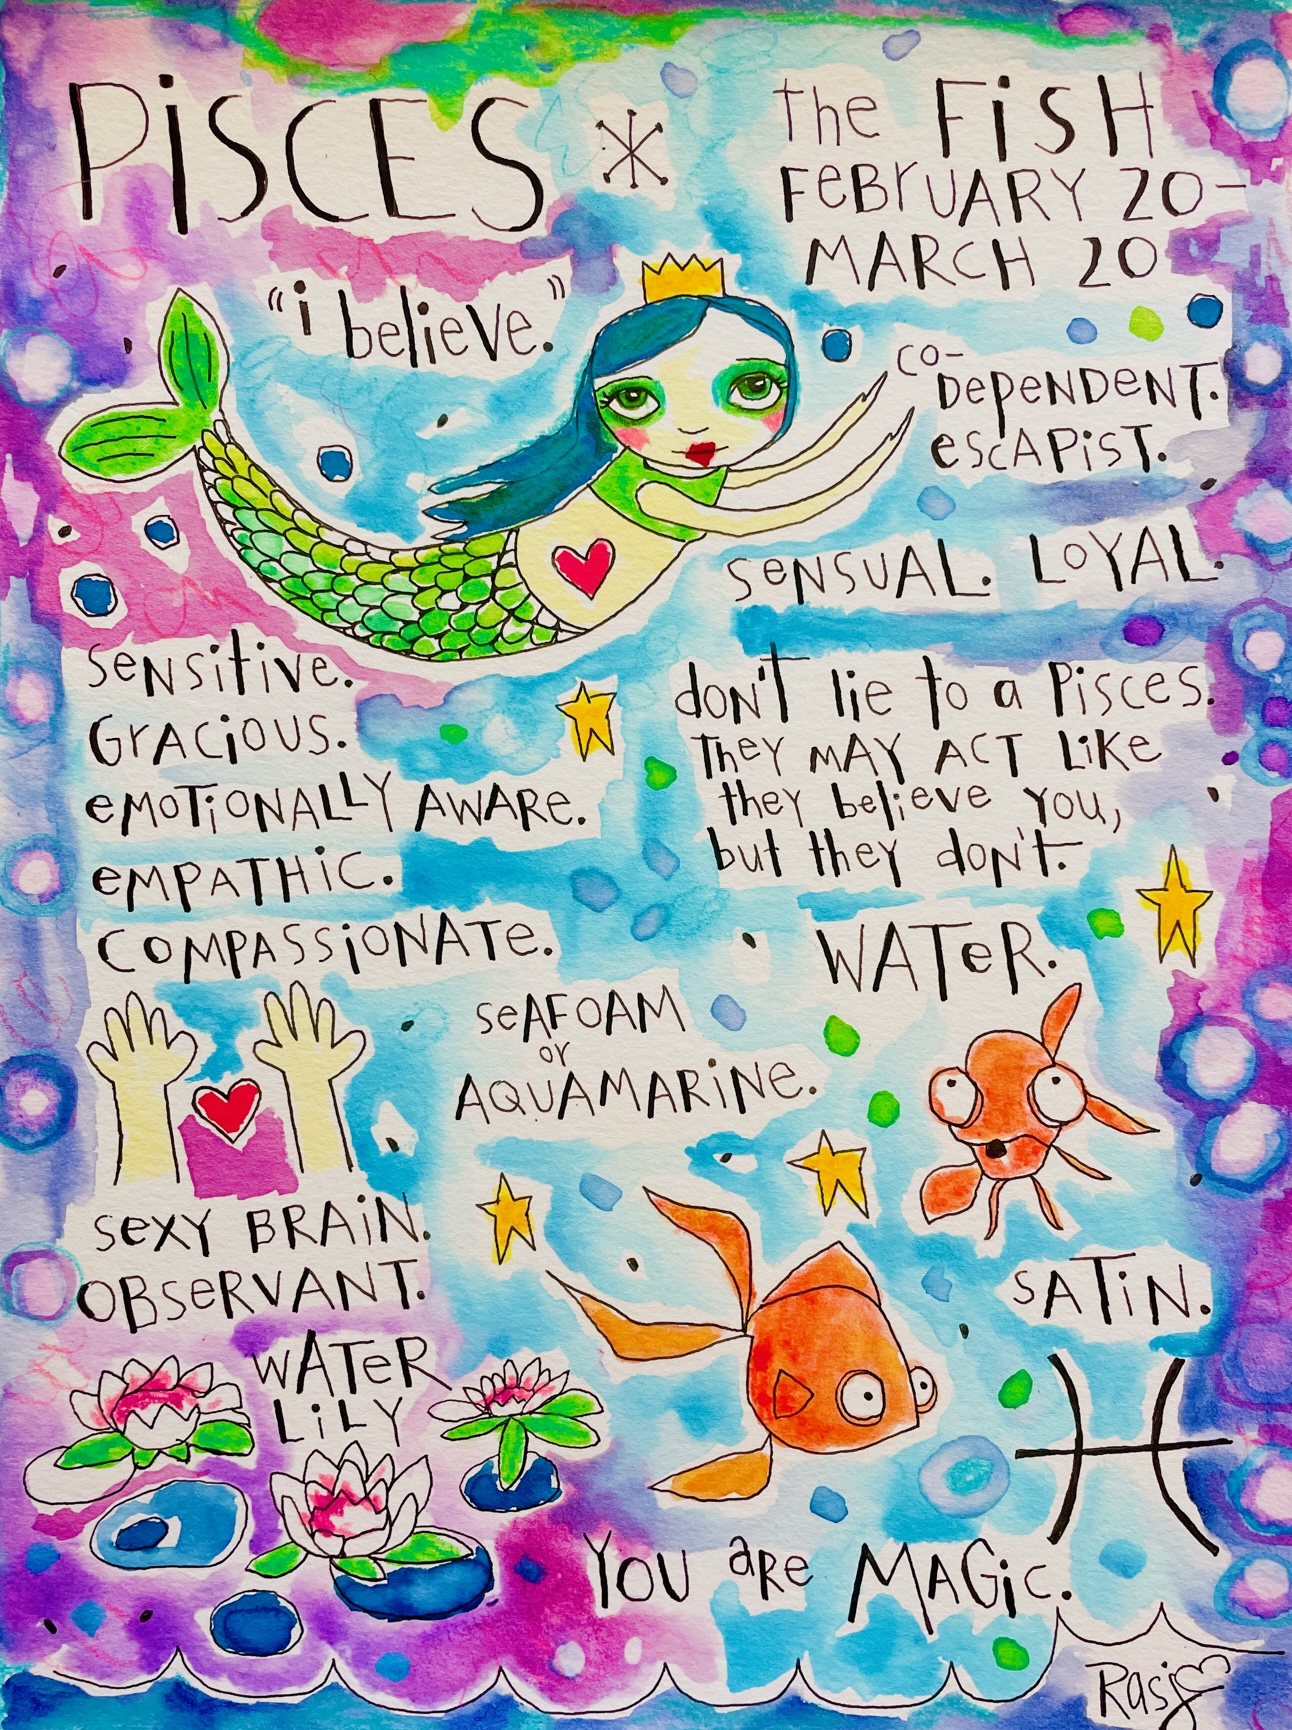 PiSCES
the FiSH
FeBrUARY 20-
MARCH 20
"i believe."
CO-
DEpeNDeNT.
escAPisT.
seNSUAL. LOYAL.
seNsitive.
GrACiOUS.
eMOTiONALLY AWARe.
eMPATHiC.
COMPASSiONATe.
don't lie to a Pisces.
They MAY ACT LiKe
they believe YOU,
but they don't.
WATeR.
seAFOAM
or
AQUAMARiNe.
sexy BRAiN.
OBseRVANT.
WATeR
LiLY
SATiN.
YOU aRe MAGiC.
Rasj